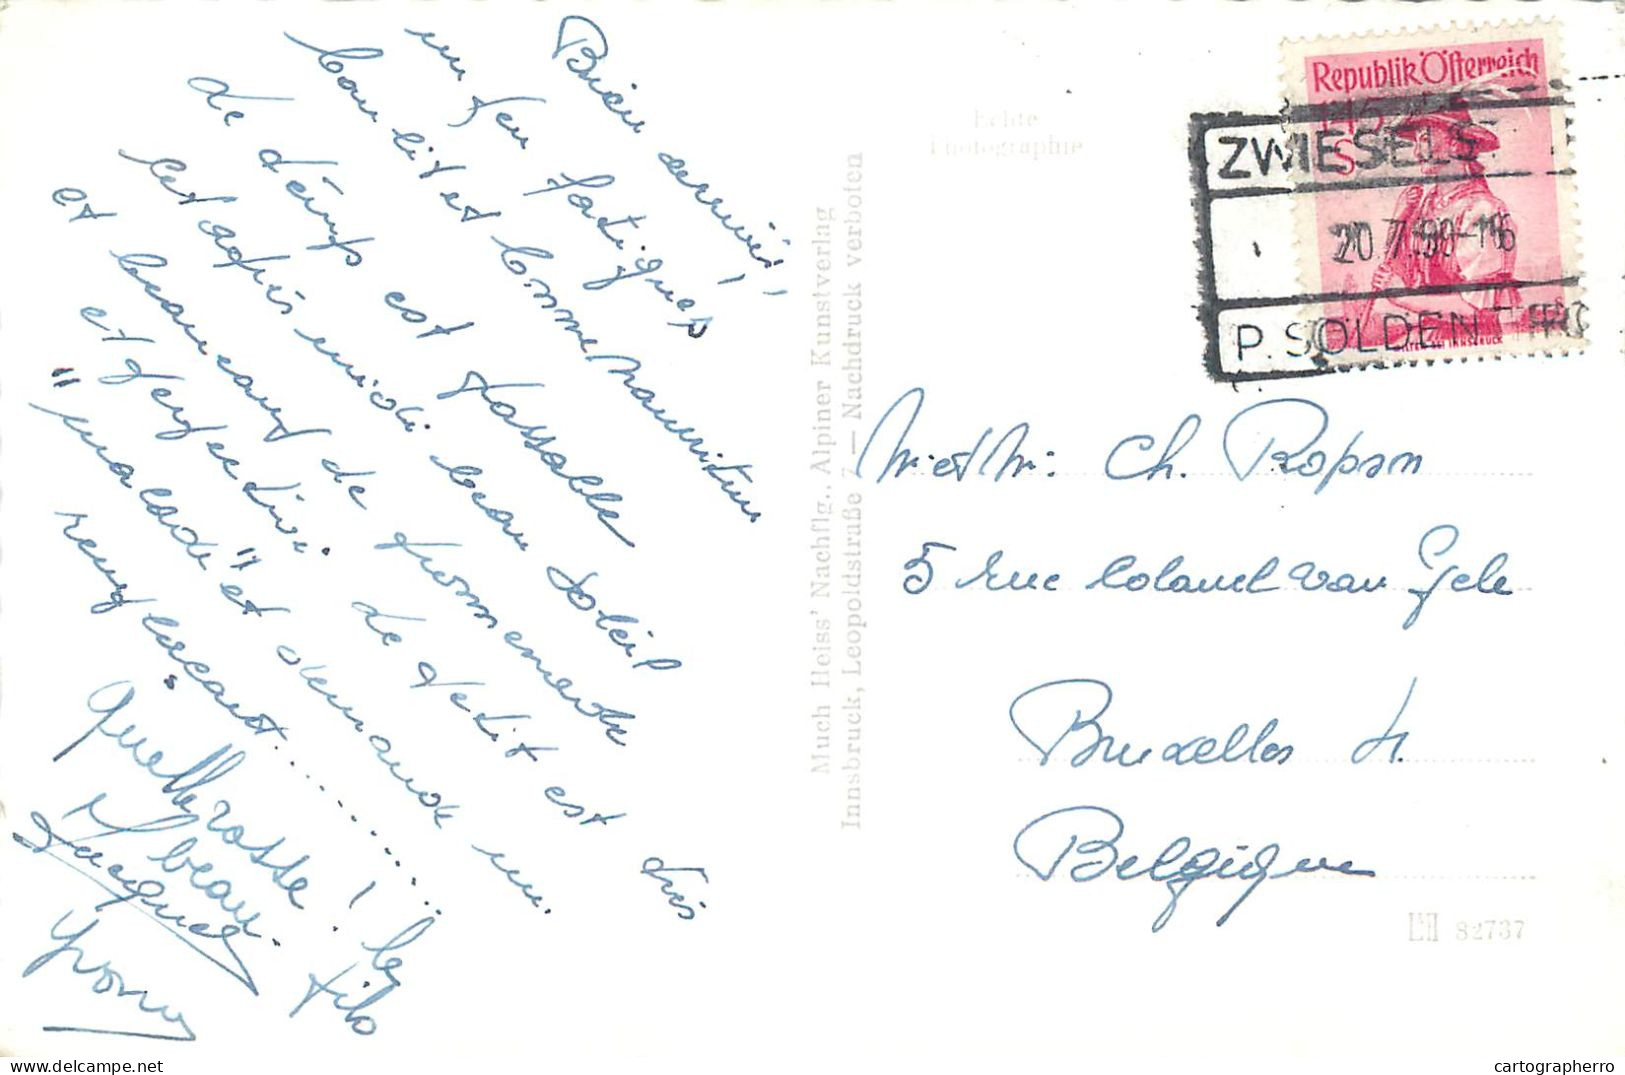 Bien arrivés,
un peu fatigués
bon lit et bonne nourriture
Le temps est passable
cet après midi beau soleil
et beaucoup de promenade
et perfection. Le petit est très
"malade" et demande un
remplaçant............
Quelle rosse! le
beau fils
Jacques
Yvonne
Echte
Photographie
Much Heiss' Nachflg., Alpiner Kunstverlag
Innsbruck, Leopoldstraße 7 — Nachdruck verboten
Republik Österreich
1.45
S
ZWIESELS
20.7.50-16
P. SÖLDEN
Mr et Mme Ch. Ropson
5 rue Colonel van Gele
Bruxelles 4.
Belgique
82737
cartographerro